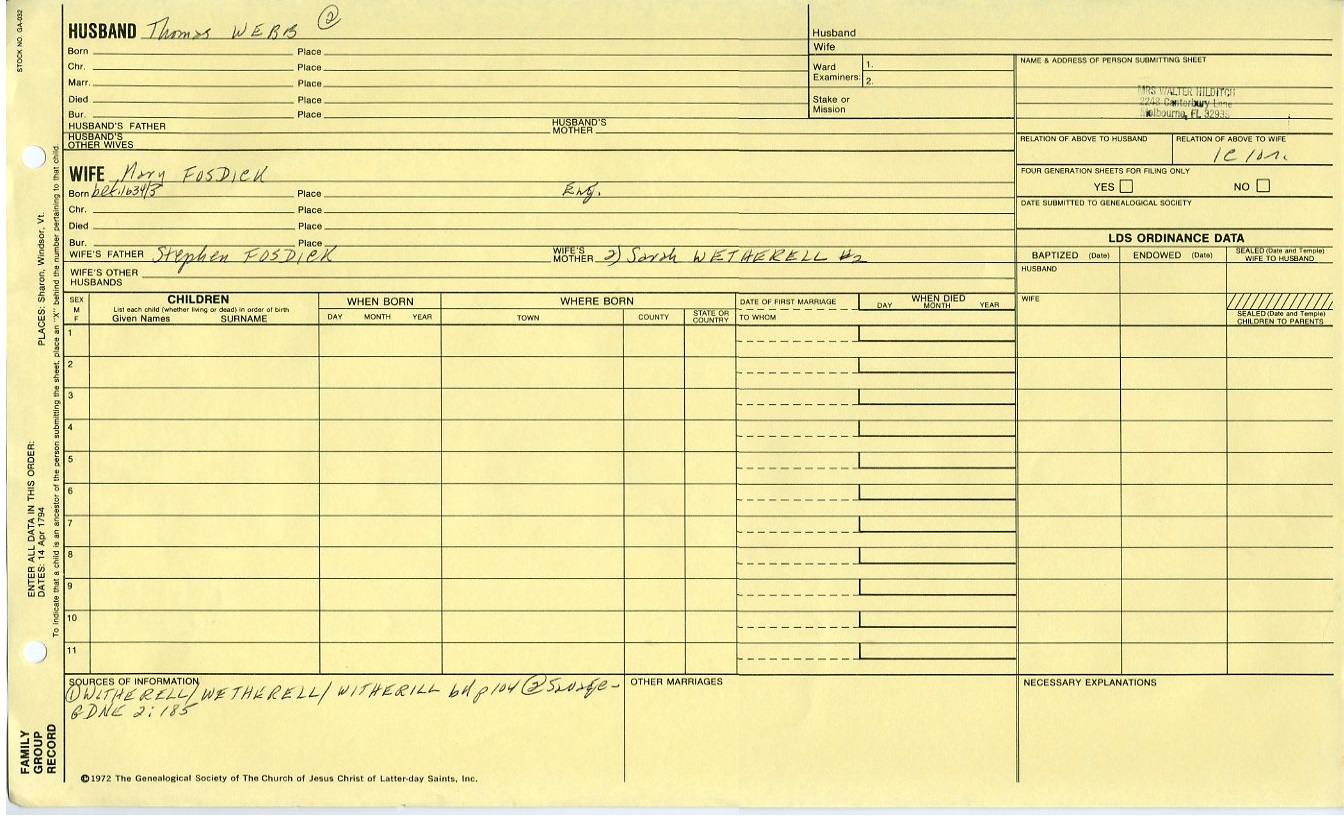 STOCK NO. GA-032
HUSBAND Thomas WEBB ②
Born Place
Chr. Place
Marr. Place
Died Place
Bur. Place
HUSBAND'S FATHER HUSBAND'S MOTHER
HUSBAND'S OTHER WIVES
Husband
Wife
Ward Examiners: 1.
2.
Stake or Mission
NAME & ADDRESS OF PERSON SUBMITTING SHEET
MRS WALTER HILDITCH
2248 Canterbury Lane
Melbourne, FL 32935
RELATION OF ABOVE TO HUSBAND RELATION OF ABOVE TO WIFE
FOUR GENERATION SHEETS FOR FILING ONLY
YES NO
DATE SUBMITTED TO GENEALOGICAL SOCIETY
WIFE Mary FOSDICK
Born bef. 1634/5 Place Eng.
Chr. Place
Died Place
Bur. Place
WIFE'S FATHER Stephen FOSDICK WIFE'S MOTHER 2) Sarah WETHERELL #2
WIFE'S OTHER HUSBANDS
LDS ORDINANCE DATA
BAPTIZED (Date) ENDOWED (Date) SEALED (Date and Temple) WIFE TO HUSBAND
HUSBAND
WIFE
SEALED (Date and Temple) CHILDREN TO PARENTS
SEX M F
CHILDREN
List each child (whether living or dead) in order of birth
Given Names SURNAME
WHEN BORN
DAY MONTH YEAR
WHERE BORN
TOWN COUNTY STATE OR COUNTRY
DATE OF FIRST MARRIAGE
TO WHOM
WHEN DIED
DAY MONTH YEAR
1
2
3
4
5
6
7
8
9
10
11
SOURCES OF INFORMATION
① WITHERELL/WETHERELL/WITHERILL p 104 ② Savage-
GDNE 2:185
OTHER MARRIAGES
NECESSARY EXPLANATIONS
©1972 The Genealogical Society of The Church of Jesus Christ of Latter-day Saints, Inc.
FAMILY GROUP RECORD
ENTER ALL DATA IN THIS ORDER:
DATES: 14 Apr 1794 PLACES: Sharon, Windsor, Vt.
To indicate that a child is an ancestor of the person submitting the sheet, place an "X" behind the number pertaining to that child.